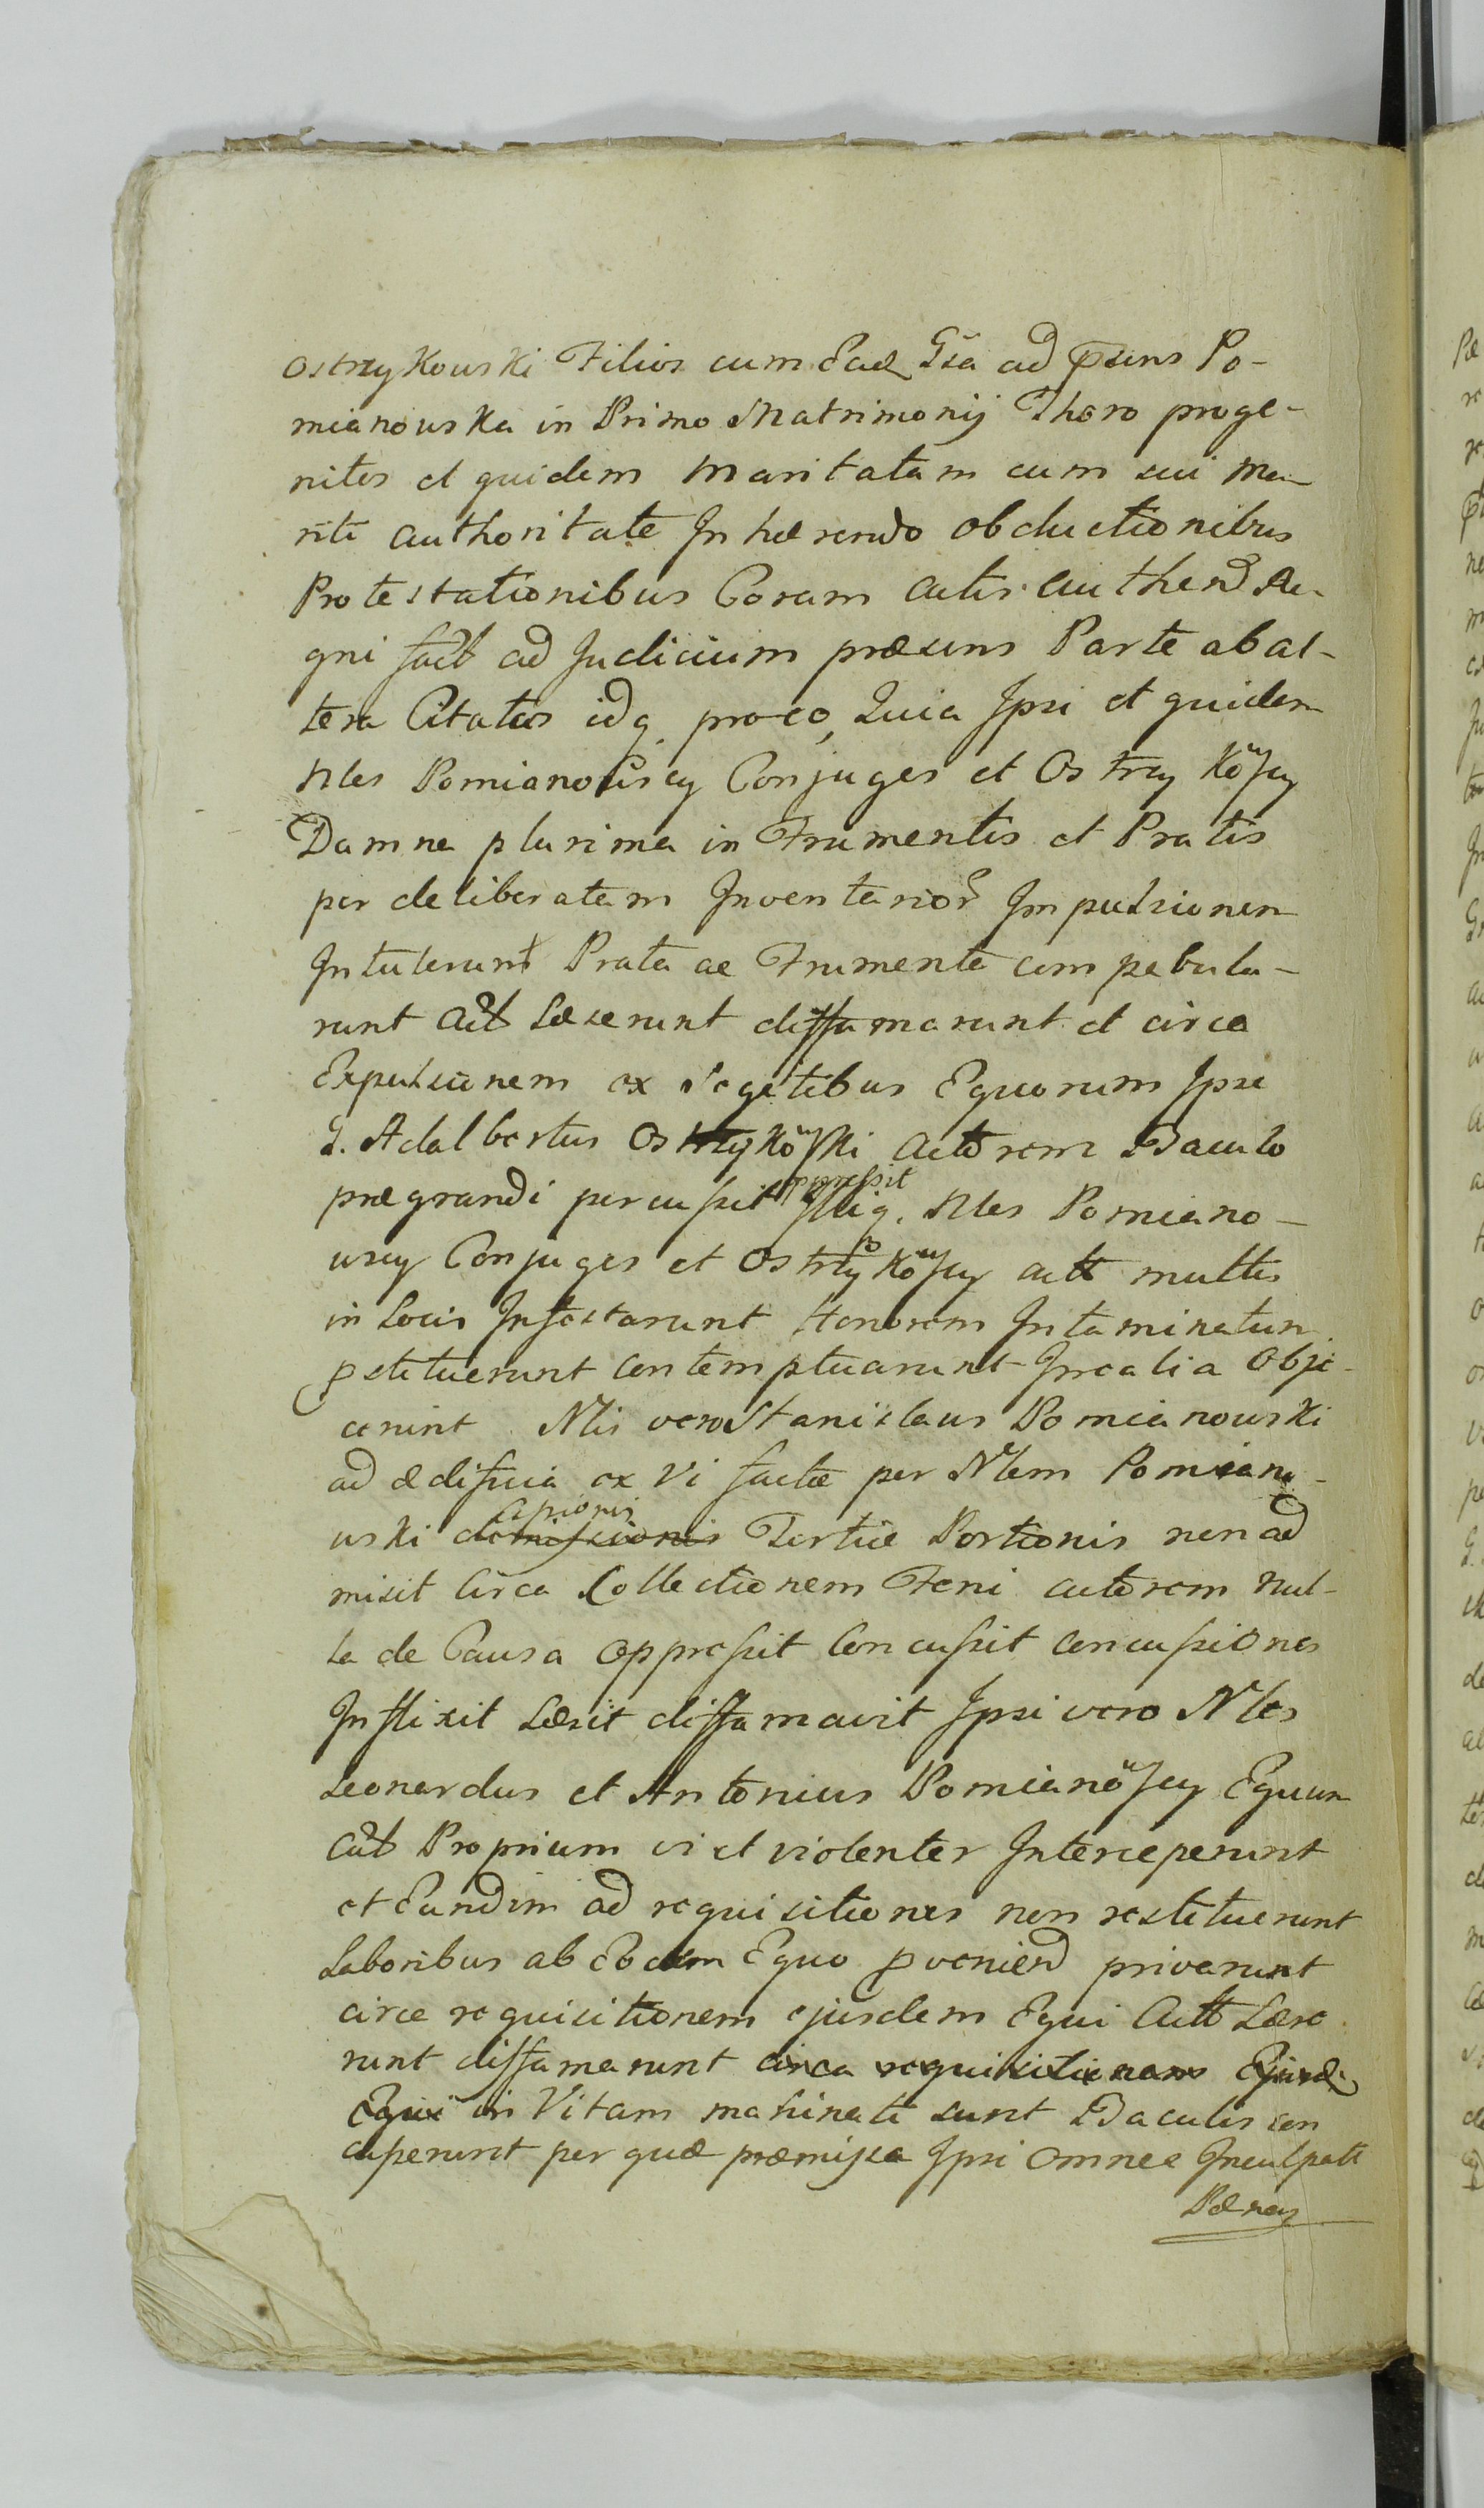 Ostrzykowski Filios cum Ead Gsa ad psens Po-
mianowska in Primo Matrimonij Thoro proge-
nitos et quidem Maritatam cum sui Ma-
riti authoritate Inhærendo obductionibus
Protestationibus Coram actis authend Re-
gni fact ad Judicium præsens Parte ab al-
tera Citatos idq pro eo, Quia Ipsi et quidem
Nles Pomianowscy Conjuges et Ostrzykowscy
Damna plurima in Frumentis et Pratis
per deliberatam Inventarior Impulsionem
Intulerunt Prata ac Frumenta compabula-
runt Act Læserunt diffamarunt et circa
Expulsionem ex Segetibus Equorum Ipse
G. Adalbertus Ostrzykowski Actorem Baculo
prægrandi percussit oppressit Nles Pomiano-
wscy Conjuges et Ostrzykowscy act multis
in Locis Infestarunt Honorem Intaminatum
pstituerunt contemptuarunt Irealia Obje-
cerunt Nlis vero Stanislaus Pomianowski
ad ædificia ex Vi factæ per Nlem Pomiano-
wski capionis Tertiæ Portionis non ad
misit Circa Collectionem Feni actorem nul-
la de Causa oppressit Concussit concussiones
Inflixit Læsit diffamavit Ipsi vero Nles
Leonardus et Antonius Pomianowscy Equum
Act Proprium vi et violenter Interceperunt
et Eundem ad requisitiones non restituerunt
Laboribus ab Eodem Equo pveniend privarunt
circa requisitionem ejusdem Equi Act Læse
runt diffamarunt circa requisitionem Ejusd
Equi in Vitam mahinati sunt Baculis con
cusserunt per quæ præmissa Ipsi omnes Inculpati
Pænas